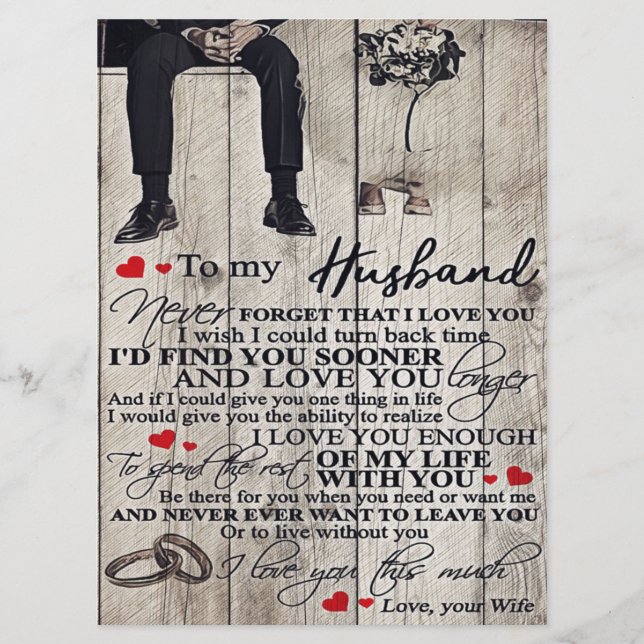 To my Husband
Never FORGET THAT I LOVE YOU
I wish I could turn back time
I'D FIND YOU SOONER
AND LOVE YOU longer
And if I could give you one thing in life
I would give you the ability to realize
I LOVE YOU ENOUGH
To spend the rest OF MY LIFE
WITH YOU
Be there for you when you need or want me
AND NEVER EVER WANT TO LEAVE YOU
Or to live without you
I love you this much
Love, your Wife